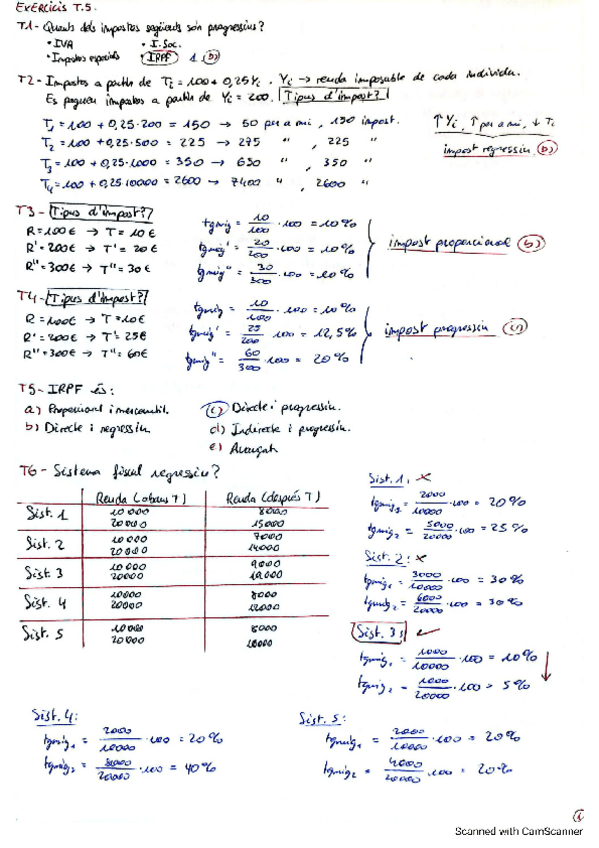 EXERCICIS T.5.
T1- Quants dels impostos següents són progressius?
• IVA • I. Soc.
• Impostos especials • IRPF 1 (b)
T2- Impostos a partir de Ti = 100 + 0,25Yi. Yi → renda imposable de cada individu.
Es paguen impostos a partir de Yi = 200. Tipus d'impost?
T1 = 100 + 0,25·200 = 150 → 50 per a mi, 150 impost.
T2 = 100 + 0,25·500 = 225 → 275 " , 225 "
T3 = 100 + 0,25·1000 = 350 → 650 " , 350 "
T4 = 100 + 0,25·10000 = 2600 → 7400 " , 2600 "
↑Yi, ↑per a mi, ↓Ti
impost regressiu (b)
T3- Tipus d'impost?
R = 100€ → T = 10€
R' = 200€ → T' = 20€
R'' = 300€ → T'' = 30€
tgmig = 10/100 · 100 = 10%
tgmig' = 20/200 · 100 = 10%
tgmig'' = 30/300 · 100 = 10%
impost proporcional (b)
T4- Tipus d'impost?
R = 100€ → T = 10€
R' = 200€ → T' = 25€
R'' = 300€ → T'' = 60€
tgmig = 10/100 · 100 = 10%
tgmig' = 25/200 · 100 = 12,5%
tgmig'' = 60/300 · 100 = 20%
impost progressiu (c)
T5- IRPF és:
a) Proporcional i mercantil.
b) Directe i regressiu.
c) Directe i progressiu.
d) Indirecte i progressiu.
e) Avançat
T6- Sistema fiscal regressiu?
Renda (abans T) Renda (després T)
Sist. 1 10000 8000
20000 15000
Sist. 2 10000 7000
20000 14000
Sist. 3 10000 9000
20000 19000
Sist. 4 10000 8000
20000 12000
Sist. 5 10000 8000
20000 16000
Sist. 1: ×
tgmig1 = 2000/10000 · 100 = 20%
tgmig2 = 5000/20000 · 100 = 25%
Sist. 2: ×
tgmig1 = 3000/10000 · 100 = 30%
tgmig2 = 6000/20000 · 100 = 30%
Sist. 3: ✓
tgmig1 = 1000/10000 · 100 = 10%
tgmig2 = 1000/20000 · 100 = 5%
Sist. 4:
tgmig1 = 2000/10000 · 100 = 20%
tgmig2 = 8000/20000 · 100 = 40%
Sist. 5:
tgmig1 = 2000/10000 · 100 = 20%
tgmig2 = 4000/20000 · 100 = 20%
1
Scanned with CamScanner